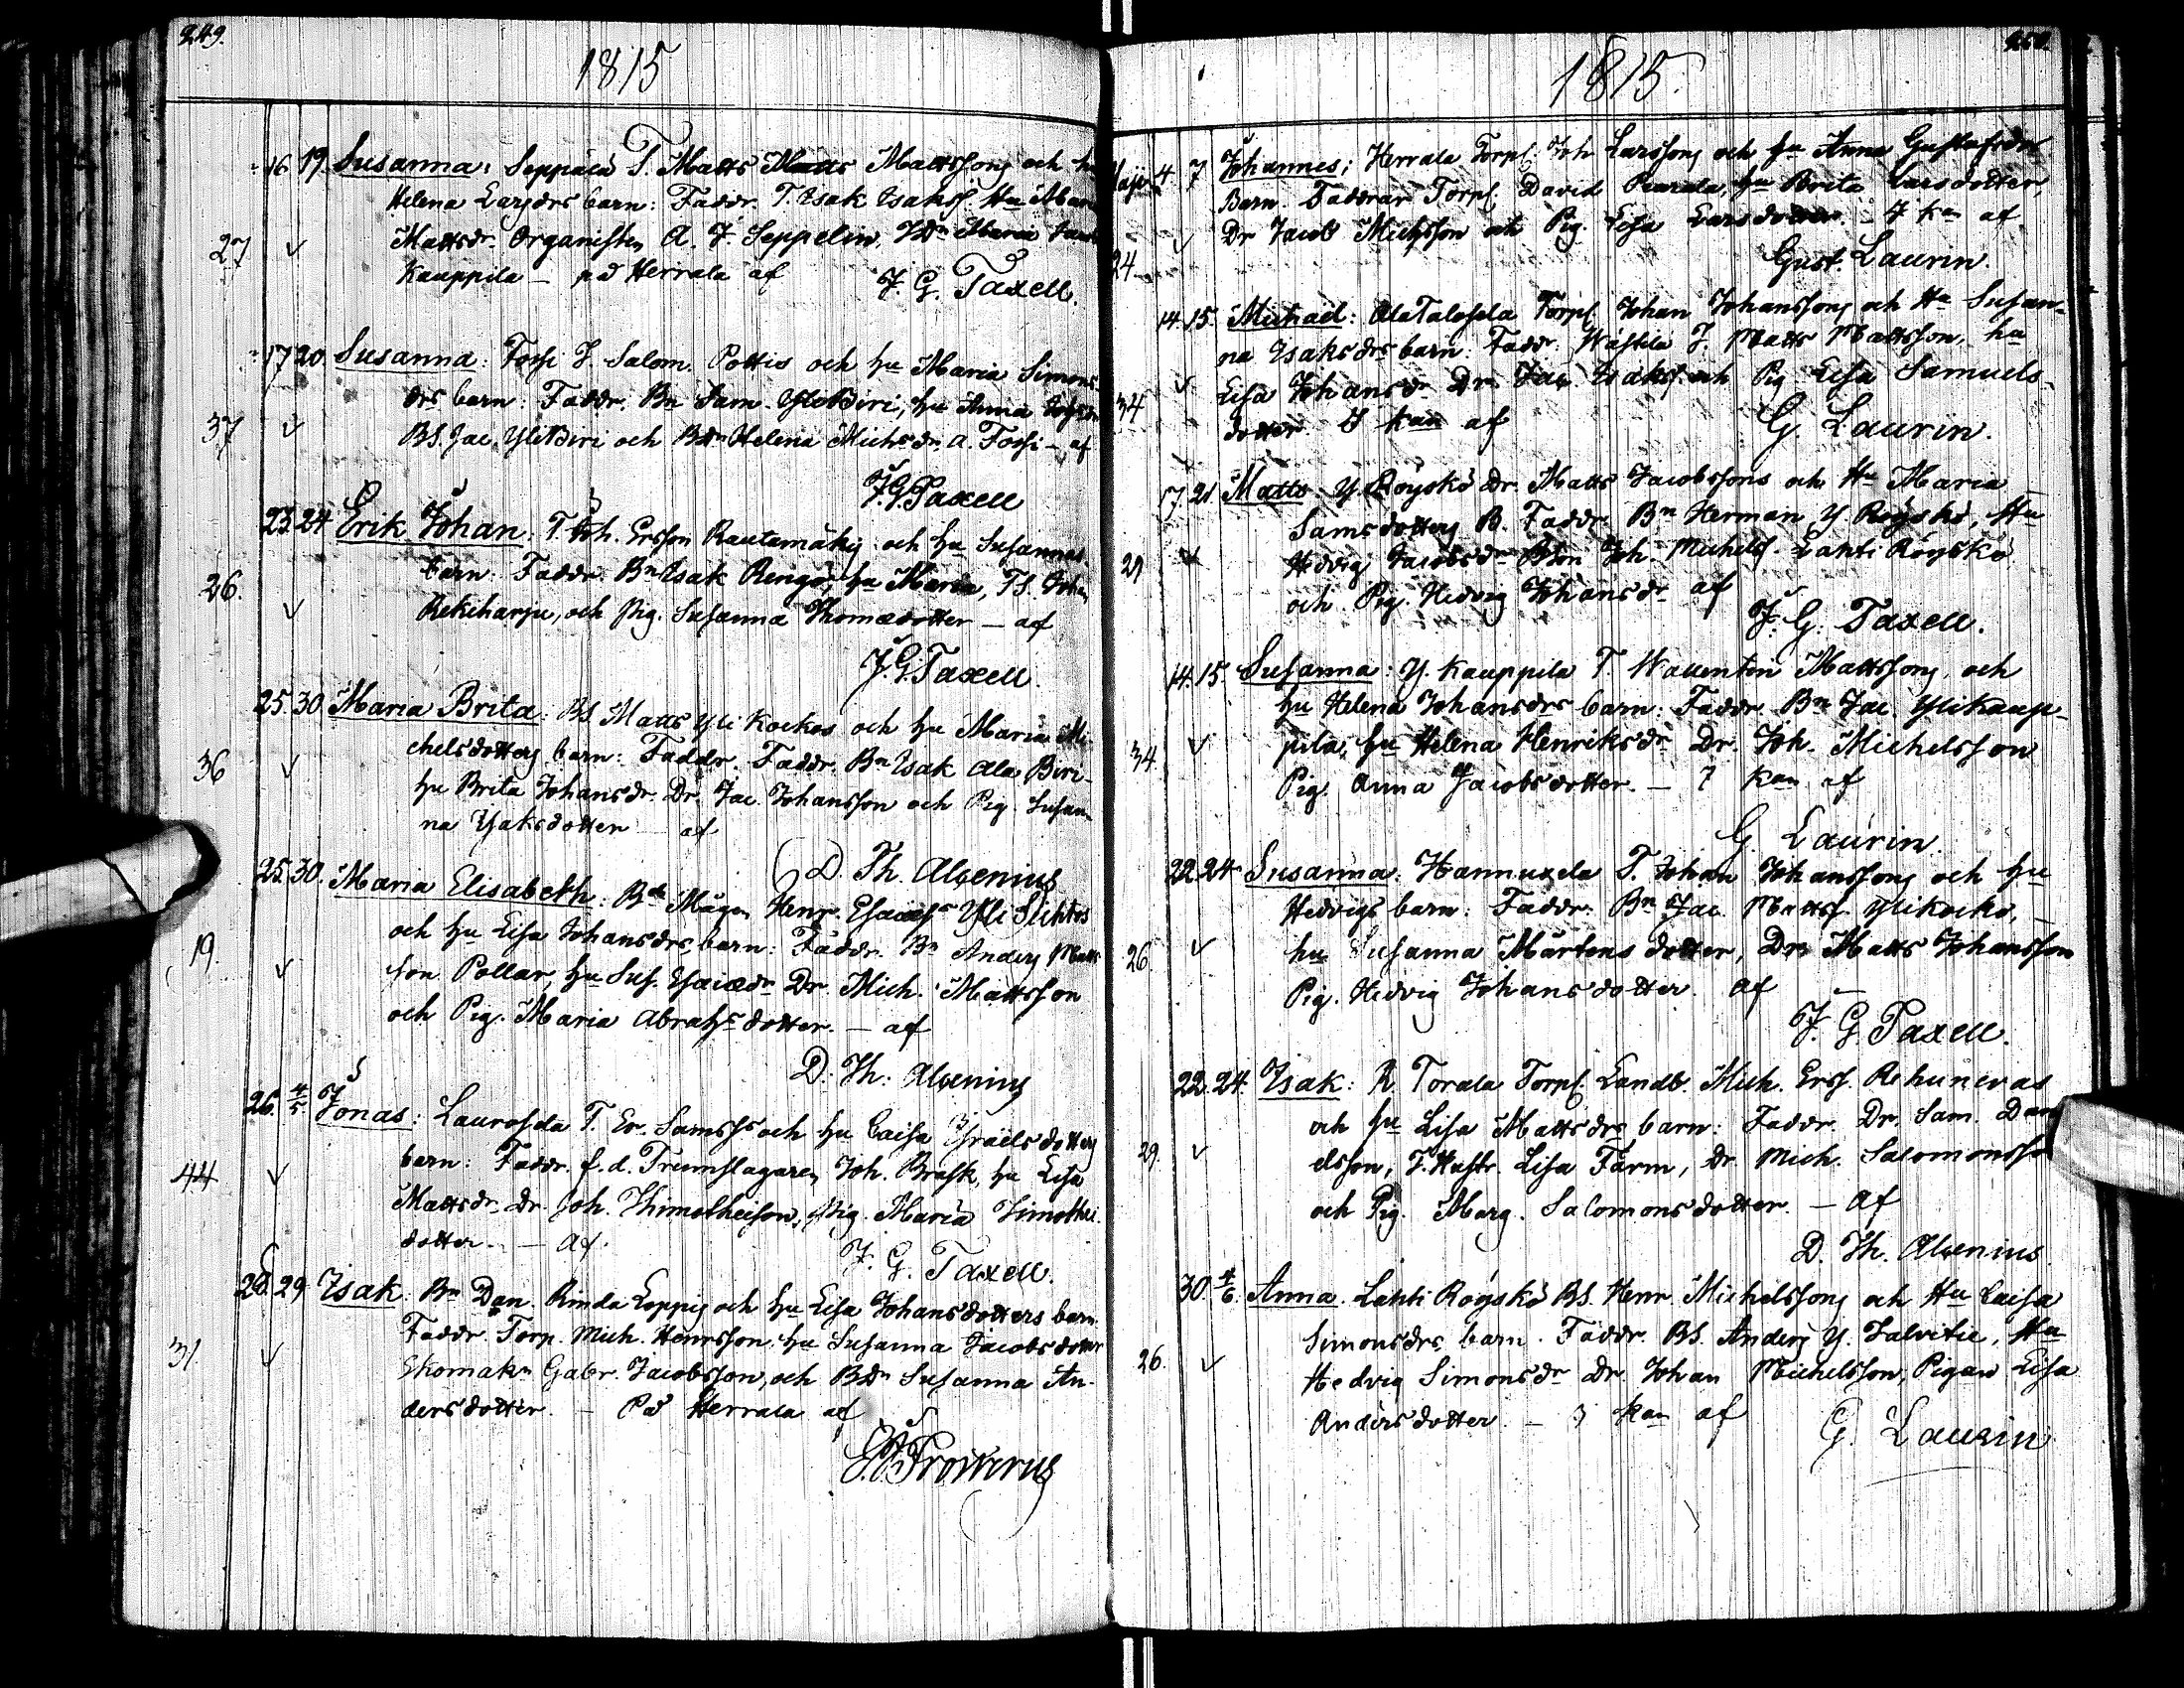 249.
1815
16. 19. Susanna: Seppälä T. Matts Matts Mattssons och hu
Helena Larsdrs barn: Faddr. T. Isak Isakss. Hu Maria
27 Mattsdr. Organisten A. J. Seppelin, Maria
Kauppila — på Herrala af
J. G. Taxell.
17 20. Susanna: Torsi J. Salom. Pottis och hu Maria Simons
drs barn: Faddr. Bn Sam. YliBiri, hu Anna
37 BS. Jac. YliBiri och Bdr Helena Michsdr. A. Torsi — af
J. G. Taxell
23. 24 Erik Johan. T. Joh. Ersson Rautamäki och hu Susannas
barn: Faddr. Bn Isak Rengo, hu Maria, TS. Johan
26. Rekiharju, och Pig. Susanna Thomadotter — af
J. G. Taxell
25. 30. Maria Brita: BS. Matts Yli Kockos och hu Maria Mi-
chelsdotters barn: Faddr. Faddr. Bn Isak Ala Biri-
36 hu Brita Johansdr. Dr. Jac. Johansson och Pig. Susan-
na Isaksdotter af
D. Th. Alcenius
25. 30. Maria Elisabeth: Bde Mågen Henr. Esaiass Yli
och hu Lisa Johansdrs barn: Faddr. Bn Anders Matts
19. son Pollar, hu Sus. Esaiædr Dr. Mich. Mattsson
och Pig. Maria Abrahsdotter. — af
D. Th. Alcenius
26. 4/5 Jonas: Laurosela T. Er. Samss och hu Caisa Israelsdotters
barn: Faddr. f. d. Trumslagaren Joh. Brask, hu Lisa
44 Mattsdr. Dr. Joh. Thimotheison, Pig. Maria Timothei
dotter. — Af.
J. G. Taxell.
28. 29 Isak. Bn Dan. Rinda Loppis och hu Lisa Johansdotters barn
Faddr. Torp. Mich. Henrsson hu Susanna Jacobsdotter
31. Skomakn Gabr. Jacobsson, och Bdr Susanna An-
dersdotter. — På Herrala af
Prosterus
1815.
Maji 4 7 Johannes; Herrala Torps. Joh Larssons och hu Anna Gustafsdrs
Barn. Faddrar Torps. David Peurala, hu Brita Larsdotter,
24. Dr Jacob Michsson och Pig. Lisa Larsdotter — 7 kan af
Gust. Laurin.
14. 15. Michael: AlaTalosela Torps. Johan Johanssons och Hu Susan-
na Isaksdrs barn: Faddr. Wästilä J. Matts Mattsson, hu
34 Lisa Johansdr Dr. Jac. Isakss och Pig Lisa Samuels-
dotter. 8 kan af
G. Laurin.
17. 21. Matts. Y. Röyskö Dr. Matts Jacobssons och Hu Maria
Samsdotters B. Faddr. Bn Herman Y Röyskö, Hu
29 Hedvig Jacobsdr Bson Joh. Michels. Lahti Röyskö
och Pig. Hedvig Johansdr af
J. G. Taxell.
14. 15. Susanna: Y. Kauppila T. Wallenton Mattssons och
hu Helena Johansdrs barn: Faddr. Bn Jac. Ylikaup-
34. pila, hu Helena Henriksdr. Dr. Joh. Michelsson
Pig. Anna Jacobsdotter. — 7 kan af
G. Laurin
22. 24 Susanna: Hannuxela T. Johan Johanssons och hu
Hedvigs barn: Faddr. Bn Jac. Mattss. Ylikocko, —
26. hu Susanna Mårtens dotter, Dr. Matts Johansson
Pig. Hedvig Johansdotter. af
J. G. Taxell.
22. 24. Isak: R. Torala Torps. Landb. Mich. Erss. Rehunevas
och hu Lisa Mattsdrs barn: Faddr. Dr. Sam. Dani
29. elsson, J. Hustr. Lisa Farm, Dr. Mich. Salomonsson
och Pig. Marg. Salomonsdotter. — Af
D. Th. Alcenius.
30. 4/6. Anna. Lahti Röyskö BS. Henr. Michelssons och Hu Caisa
Simonsdrs barn. Faddr. BS. Anders Y. Jalvetie, Hu
26. Hedvig Simonsdr. Dr. Johan Michelsson, Pigan Lisa
Andersdotter. — 3 kan af
G. Laurin